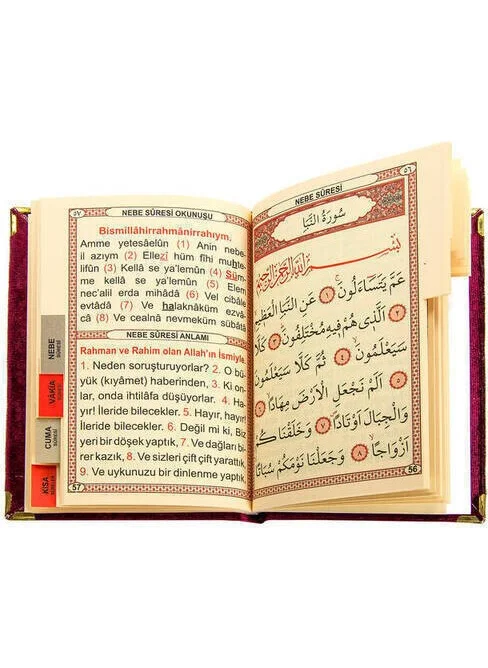 ٥٧
NEBE SÛRESİ OKUNUŞU
Bismillâhirrahmânirrahıym.
Amme yetesâelûn (1) Anin nebe-
il azıym (2) Ellezî hüm fîhi muhte-
lifûn (3) Kellâ se ya'lemûn (4) Süm-
me kellâ se ya'lemûn (5) Elem
nec'alil erda mihâdâ (6) Vel cibâle
evtâdâ (7) Ve halaknâküm ezvâ-
câ (8) Ve cealnâ nevmeküm sübâtâ
NEBE SÛRESİ ANLAMI
Rahman ve Rahim olan Allah'ın İsmiyle.
1. Neden soruşturuyorlar? 2. O bü-
yük (kıyâmet) haberinden, 3. Ki on-
lar, onda ihtilâfa düşüyorlar. 4. Ha-
yır! İleride bilecekler. 5. Hayır, hayır!
İleride bilecekler. 6. Değil mi ki, Biz
yeri bir döşek yaptık, 7. Ve dağları bi-
rer kazık, 8. Ve sizleri çift çift yarattık.
9. Ve uykunuzu bir dinlenme yaptık.
57
NEBE
SÛRESİ
VÂKIA
SÛRESİ
CUMA
SÛRESİ
KISA
SÛRELER
٥٦
NEBE SÛRESİ
سُورَةُ النَّبَأِ
بِسْمِ اللّٰهِ الرَّحْمٰنِ الرَّحِيمِ
عَمَّ يَتَسَاءَلُونَۚ ﴿١﴾ عَنِ النَّبَأِ الْعَظِيمِ
﴿٢﴾ اَلَّذِي هُمْ فِيهِ مُخْتَلِفُونَ ﴿٣﴾ كَلَّا
سَيَعْلَمُونَ ﴿٤﴾ ثُمَّ كَلَّا سَيَعْلَمُونَ
﴿٥﴾ اَلَمْ نَجْعَلِ الْاَرْضَ مِهَادًا ﴿٦﴾
وَالْجِبَالَ اَوْتَادًا ﴿٧﴾ وَخَلَقْنَاكُمْ
اَزْوَاجًا ﴿٨﴾ وَجَعَلْنَا نَوْمَكُمْ سُبَاتًا
56